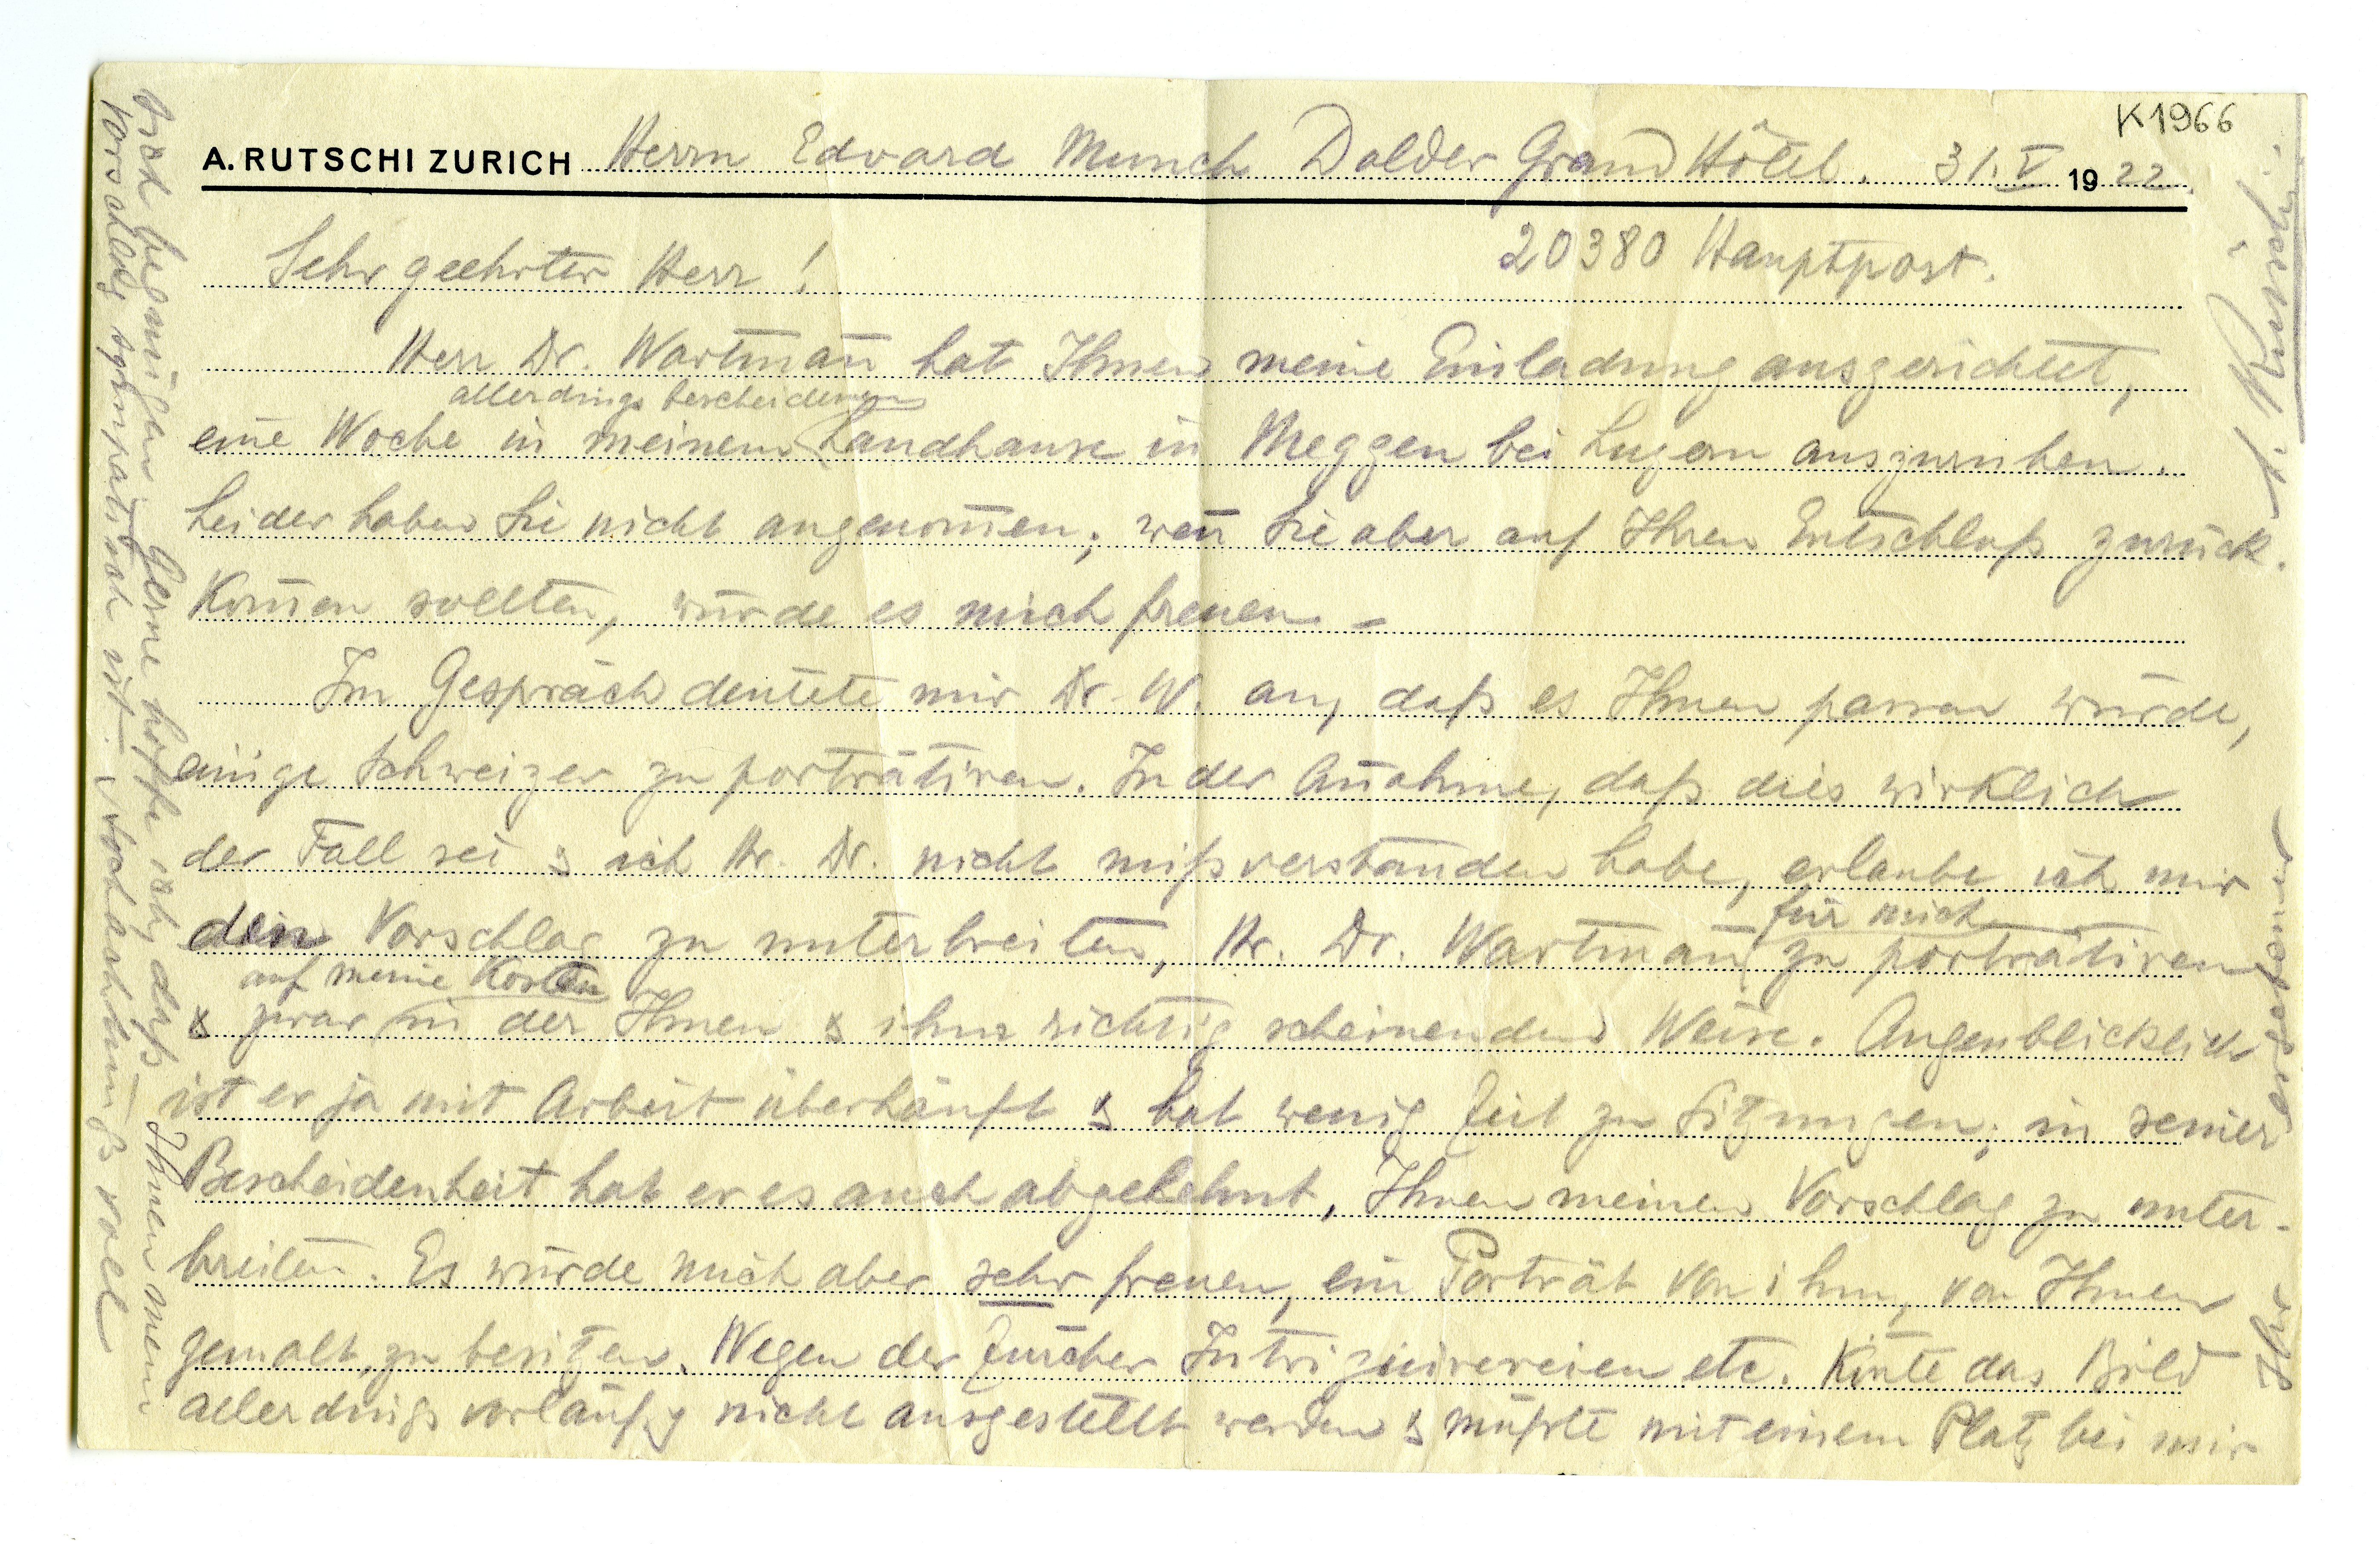 K1966
A. RUTSCHI ZURICH Herrn Edvard Munch Dolder Grand Hôtel. 31. V 1922.
20380 Hauptpost.
Sehr geehrter Herr!
Herr Dr. Wartman̄ hat Ihnen meine Einladung ausgerichtet,
allerdings bescheidenen
eine Woche in meinem Landhause in Meggen bei Luzern auszuruhen.
Leider haben Sie nicht angenom̄en; wen̄ Sie aber auf Ihren Entschluß zurück-
kom̄en sollten, würde es mich freuen. –
Im Gespräch deutete mir Dr. W. an, daß es Ihnen passen würde,
einige Schweizer zu porträtiren. In der An̄ahme, daß dies wirklich
der Fall sei & ich Hr. Dr. nicht mißverstanden habe, erlaube ich mir
den Vorschlag zu unterbreiten, Hr. Dr. Wartman̄ für mich zu porträtiren
auf meine Kosten
& zwar in der Ihnen & ihm richtig scheinenden Weise. Augenblicklich
ist er ja mit Arbeit überhäuft & hat wenig Zeit zu Sitzungen; in seiner
Bescheidenheit hat er es auch abgelehnt, Ihnen meinen Vorschlag zu unter-
breiten. Es würde mich aber sehr freuen, ein Porträt von ihm, von Ihnen
gemalt, zu besitzen. Wegen der Zürcher Intriguirereien etc. kön̄te das Bild
allerdings vorläufig nicht ausgestellt werden & müßte mit einem Platz bei mir
sich begnügen. Gerne hoffe ich, daß Ihnen mein
Vorschlag sympatisch ist. Hochachtungsvoll
Ihr ergebener
A. Rütschi.